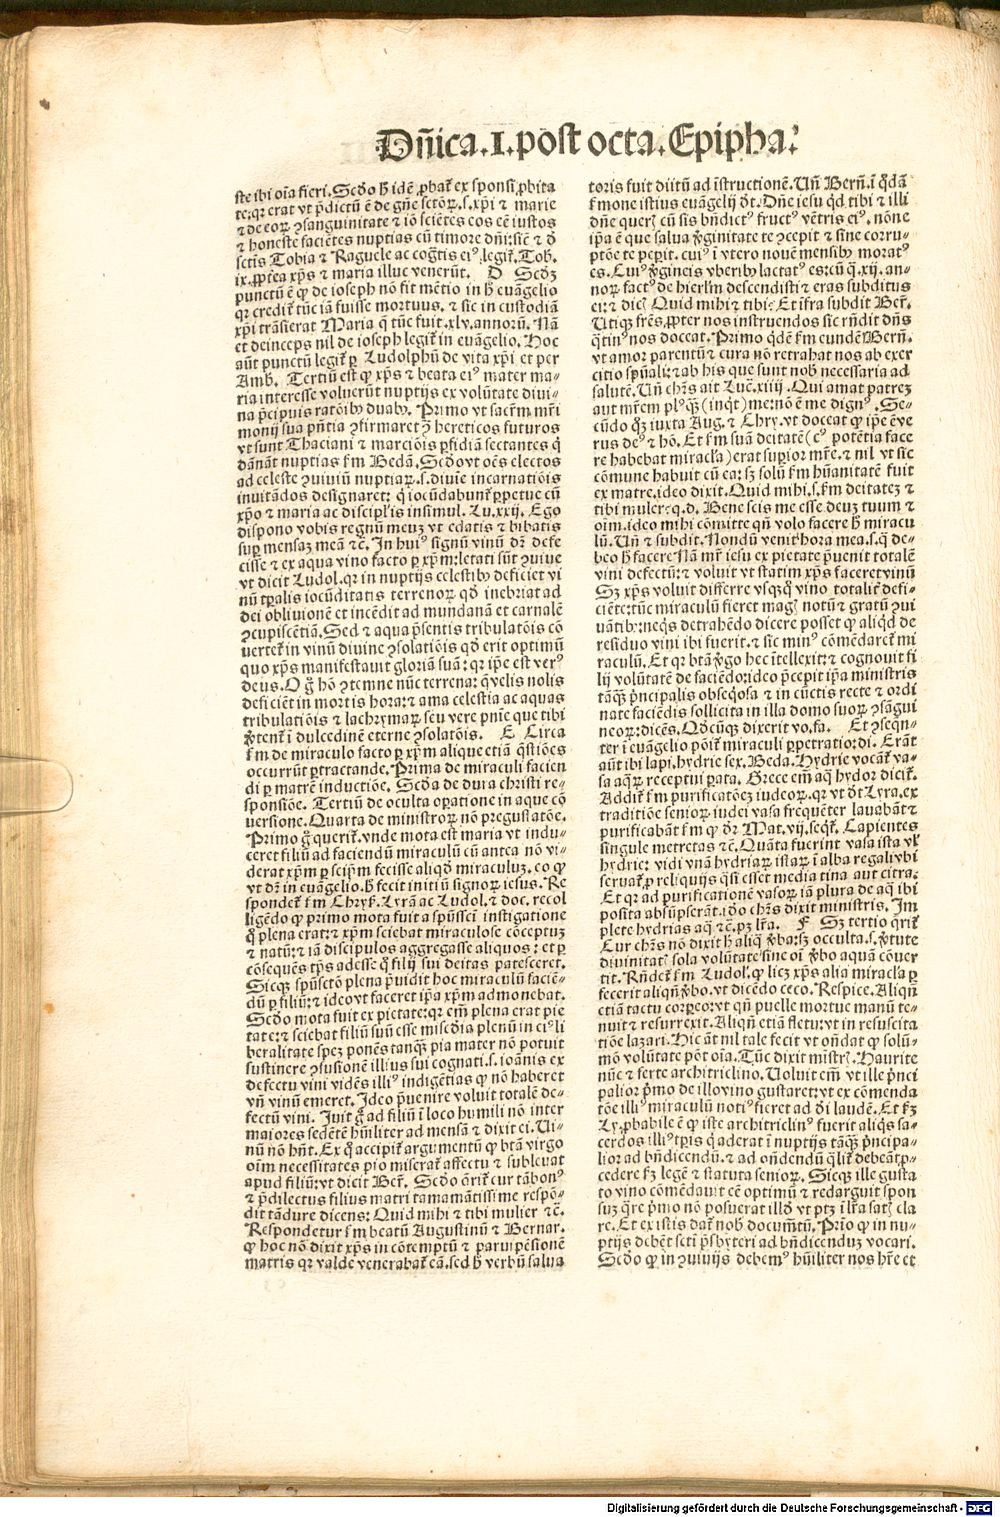 Dn̄ica.I.post octa.Epipha.
ste ibi oīa fieri. Scd̄o h̄ idē ꝓbat̄ ex sponsi ꝓbita
te:qꝛ erat vt p̄dictū ē de gn̄e sctōꝝ.s.xp̄i ⁊ marie
⁊ de eoꝝ ↄsanguinitate ⁊ iō sciētes eos eē iustos
⁊ honeste faciētes nuptias cū timore dn̄i:sicē ⁊ d̄
sctis Tobia ⁊ Raguele ac coḡtis eiꝰ legit̄. Tob.
ix. ꝓpt̄ea xp̄s ⁊ maria illuc venerūt. D Scd̄ꝫ
punctū ē ꝙ de ioseph nō fit mētio in h̄ euāgelio
qꝛ credit̄ tūc iā fuisse mortuus. ⁊ sic in custodiā
xp̄i trāsierat Maria q̄ tūc fuit.xlv.annorū. Nā
et deinceps nil de ioseph legit̄ in euāgelio. Hoc
aūt punctū legit̄ ꝑ Ludolphū de vita xp̄i et per
Amb. Tertiū est ꝙ xp̄s ⁊ beata eiꝰ mater ma-
ria interesse voluerūt nuptijs ex volūtate diui-
na p̄cipuis ratōibꝫ duabꝫ. Primo vt sacr̄m mr̄i
monij sua pn̄tia ↄfirmaret ↄ̄ hereticos futuros
vt sunt Thaciani ⁊ marciōis ꝑfidiā sectantes q̄
dānāt nuptias fm̄ Bedā. Scd̄o vt oēs electos
ad celeste ↄuiuiū nuptiaꝝ.s.diuie incarnatiōis
inuitādos designaret: q̄ iocūdabunt̄ ꝑpetue cū
xp̄o ⁊ maria ac discipl̄is insimul. Lu.xxij. Ego
dispono vobis regnū meuꝫ vt edatis ⁊ bibatis
suꝑ mensaꝫ meā ⁊c̄. In huiꝰ signū vinū dr̄ defe
cisse ⁊ ex aqua vino facto ꝑ xp̄m:letati sūt ↄuiue
vt dicit Ludol. qꝛ in nuptijs celestibꝫ deficiet vi
nū tꝑalis iocūditatis terrenoꝝ qd̄ inebriat ad
dei obliuionē et incēdit ad mundanā et carnalē
ↄcupiscētiā. Sed ⁊ aqua p̄sentis tribulatōis cō
uertet̄ in vinū diuine ↄsolatiōis qd̄ erit optimū
quo xp̄s manifestauit gloriā suā: qꝛ ip̄e est verꝰ
deus. O g̊ hō ↄtemne nūc terrena: q̄ velis nolis
deficiēt in mortis hora: ⁊ ama celestia ac aquas
tribulatiōis ⁊ lachrymaꝝ seu vere pn̄ie que tibi
ꝟtent̄ ī dulcedinē eterne ↄsolatōis. E Circa
fm̄ de miraculo facto ꝑ xp̄m alique etiā q̄stiōes
occurrūt ꝑtractande. Prima de miraculi facien
di ꝑ matrē inductiōe. Scd̄a de dura christi re-
sponsiōe. Tertiū de occulta oꝑatione in aque cō
uersione. Quarta de ministroꝝ nō pregustatōe.
Primo g̊ querit̄. vnde mota est maria vt indu-
ceret filiū ad faciendū miraculū cū antea nō vi-
derat xp̄m ꝑ seip̄m fecisse aliqd̄ miraculuꝫ. eo ꝙ
vt dr̄ in euāgelio.h̄ fecit initiū signoꝝ iesus. Re
spondet̄ fm̄ Chrys̄. Lyrā ac Ludol. ⁊ doc. recol
ligēdo ꝙ primo mota fuit a spūssct̄i instigatione
q̄ plena erat: ⁊ xp̄m sciebat miraculose cōceptuꝫ
⁊ natū: ⁊ iā discipulos aggregasse aliquos: et ꝑ
cōsequēs tp̄s adesse q̄ filij sui deitas patesceret.
Sicqꝫ spūsctō plena p̄uidit hoc miraculū faciē-
dū ꝑ filiū: ⁊ ideo vt faceret ip̄a xp̄m admonebat.
Scd̄o mota fuit ex pietate: qꝛ em̄ plena erat pie
tate: ⁊ sciebat filiū suū esse misc̄dia plenū in eiꝰ li
beralitate speꝫ ponēs tanqꝫ̄ pia mater nō potuit
sustinere ↄfusionē illius sui cognati.s.ioānis ex
defectu vini vidēs illiꝰ indigētias ꝙ nō haberet
vn̄ vinū emeret. Ideo p̄uenire voluit totalē de-
fectū vini. Iuit g̊ ad filiū ī loco humili nō inter
maiores sedētē hūiliter ad mensā ⁊ dixit ei. Ui-
nū nō hn̄t. Ex q̊ accipit̄ argumentū ꝙ btā virgo
oīm necessitates pio miserat̄ affectu ⁊ subleuat
apud filiū: vt dicit Ber̄. Scd̄o q̄rit̄ cur tā bonꝰ
⁊ p̄dilectus filius matri tam amātissime respō-
dit tā dure dicens: Quid mihi ⁊ tibi mulier ⁊c̄.
Respondetur fm̄ beatū Augustinū ⁊ Bernar.
ꝙ hoc nō dixit xp̄s in cōtemptū ⁊ paruipēsionē
matris qꝛ valde venerabat̄ eā. sed h̄ verbū salua
toris fuit diitū ad īstructionē. Un̄ Bern̄. ī q̊dā
fm̄one istius euāgelij d̄t. Dn̄e iesu qd̄ tibi ⁊ illi
dn̄e querꝭ cū sis bn̄dictꝰ fructꝰ vētris eiꝰ. nōne
ip̄a ē que salua ꝟginitate te ↄcepit ⁊ sine corru-
ptōe te peperit. cuiꝰ ī vtero nouē mensibꝫ moratꝰ
es. Euiꝰ ꝟgineis vberibꝫ lactatꝰ es: cū q̄.xij. an-
noꝝ factꝰ de hierl̄m descendisti ⁊ eras subditus
ei: ⁊ dicꝭ Quid mihi ⁊ tibi: Et īfra subdit Ber̄.
Utiqꝫ frēs, ꝓpter nos instruendos sic rn̄dit dn̄s
q̄tinꝰ nos doceat. Primo q̊dē fm̄ eundē Bern̄.
vt amor parentū ⁊ cura nō retrahat nos ab exer
citio spūali: ⁊ ab his que sunt nob̄ necessaria ad
salutē. Un̄ chr̄s ait Luē.xiiij. Qui amat patreꝫ
aut mr̄em plꝰqꝫ̄ (inq̄t) me: nō ē me dignꝰ. Se-
cūdo qꝫ iuxta Aug. ⁊ Chry. vt doceat ꝙ ip̄e ē ve
rus deꝰ ⁊ hō. Et fm̄ suā deitatē (cꝰ potētia face
re habebat miracl̄a) erat suꝑior mr̄e. ⁊ nil vt sic
cōmune habuit cū ea: sꝫ solū fm̄ hūanitatē fuit
ex matre. ideo dixit. Quid mihi.s.fm̄ deitateꝫ ⁊
tibi mulier: q.d. Bene scis me esse deuꝫ tuum ⁊
oīm. ideo mihi cōmitte qn̄ volo facere h̄ miracu
lū. Un̄ ⁊ subdit. Nondū venit hora mea.s.q̄ de-
beo h̄ facere Nā mr̄ iesu ex pietate p̄uenit totalē
vini defectū: ⁊ voluit vt statim xp̄s faceret vinū
Sꝫ xp̄s voluit differre vsqꝫq̄ vino totalit̄ defi-
ciēte: tūc miraculū fieret magꝭ notū ⁊ gratū ↄui
uātibꝫ: neqꝫ detrahēdo dicere posset ꝙ aliqd̄ de
residuo vini ibi fuerit. ⁊ sic minꝰ cōmēdaret̄ mi
raculū. Et qꝛ btā ꝟgo hec ītellexit: ⁊ cognouit fi
lij volūtatē de faciēdo: ideo p̄cepit ip̄a ministris
tāqꝫ̄ p̄ncipalis obseq̄osa ⁊ in cūctis recte ⁊ ordi
nate faciēdis sollicita in illa domo suoꝝ ↄsāgui
neoꝝ: dicēs. Qd̄cūqꝫ dixerit vo.fa. Et ↄseqn̄-
ter ī euāgelio pōit̄ miraculi ꝑpetratio: di. Erāt
aūt ibi lapi. hydrie sex. Beda. Hydrie vocāt̄ va-
sa aqꝝ receptui pata. Grece em̄ aq̄ hydor dicit̄.
Addit̄ fm̄ purificatōeꝫ iudeoꝝ. qꝛ vt d̄t Lyra. ex
traditiōe senioꝝ iudei vasa frequēter lauabāt ⁊
purificabāt fm̄ ꝙ dr̄ Mat.vij. seqt̄. Capientes
singule metretas ⁊c̄. Quāta fuerint vasa ista vl̄
hydrie: vidi vnā hydriaꝝ istaꝝ ī alba regali vbi
seruat̄ ꝓ reliquijs q̄si esset media tina aut citra.
Et qꝛ ad purificationē vasoꝝ iā plura de aq̄ ibi
posita absūpserāt. id̄o chr̄s dixit ministris. Im
plete hydrias aq̄ ⁊c̄.pꝫ lr̄a. F Sꝫ tertio q̄rit̄
Cur chr̄s nō dixit h̄ aliq̊ ꝟbo: sꝫ occulta.s. ꝟtute
diuinitatꝭ sola volūtate sine oī ꝟbo aquā cōuer
tit. Rn̄det̄ fm̄ Ludol. ꝙ licꝫ xp̄s alia miracl̄a ꝑ
fecerit aliqn̄ ꝟbo. vt dicēdo ceco. Respice. Aliqn̄
etiā tactu corꝑeo: vt qn̄ puelle mortue manū te-
nuit ⁊ resurrexit. Aliqn̄ etiā fletu: vt in resuscita
tiōe lazari. Hic āt nil tale fecit vt on̄dat ꝙ solū-
mō volūtate pōt oīa. Tūc dixit mistrꝭ. Haurite
nūc ⁊ ferte architriclino. Uoluit em̄ vt ille p̄nci
palior p̄mo de illo vino gustaret: vt ex cōmenda
tōe illiꝰ miraculū notiꝰ fieret ad d̄i laudē. Et fꝫ
Ly. ꝓbabile ē ꝙ iste architriclinꝰ fuerit aliq̄s sa-
cerdos illiꝰ tꝑis q̄ aderat ī nuptijs tāqꝫ̄ p̄ncipa-
lior ad bn̄dicendū. ⁊ ad on̄dendū q̄lit̄ debeāt ꝓ-
cedere fꝫ legē ⁊ statuta senioꝝ. Sicqꝫ ille gusta
to vino cōmēdauit eē optimū ⁊ redarguit spon
suꝫ q̄re p̄mo nō posuerat illd̄ vt ptꝫ ī lr̄a satꝭ cla
re. Et ex istis dat̄ nob̄ docum̄tū. Prīo ꝙ in nu-
ptijs debēt scti p̄sbyteri ad bn̄dicenduꝫ vocari.
Scd̄o ꝙ in ↄuiuijs debemꝰ hūiliter nos hr̄e et
Digitalisierung gefördert durch die Deutsche Forschungsgemeinschaft - DFG